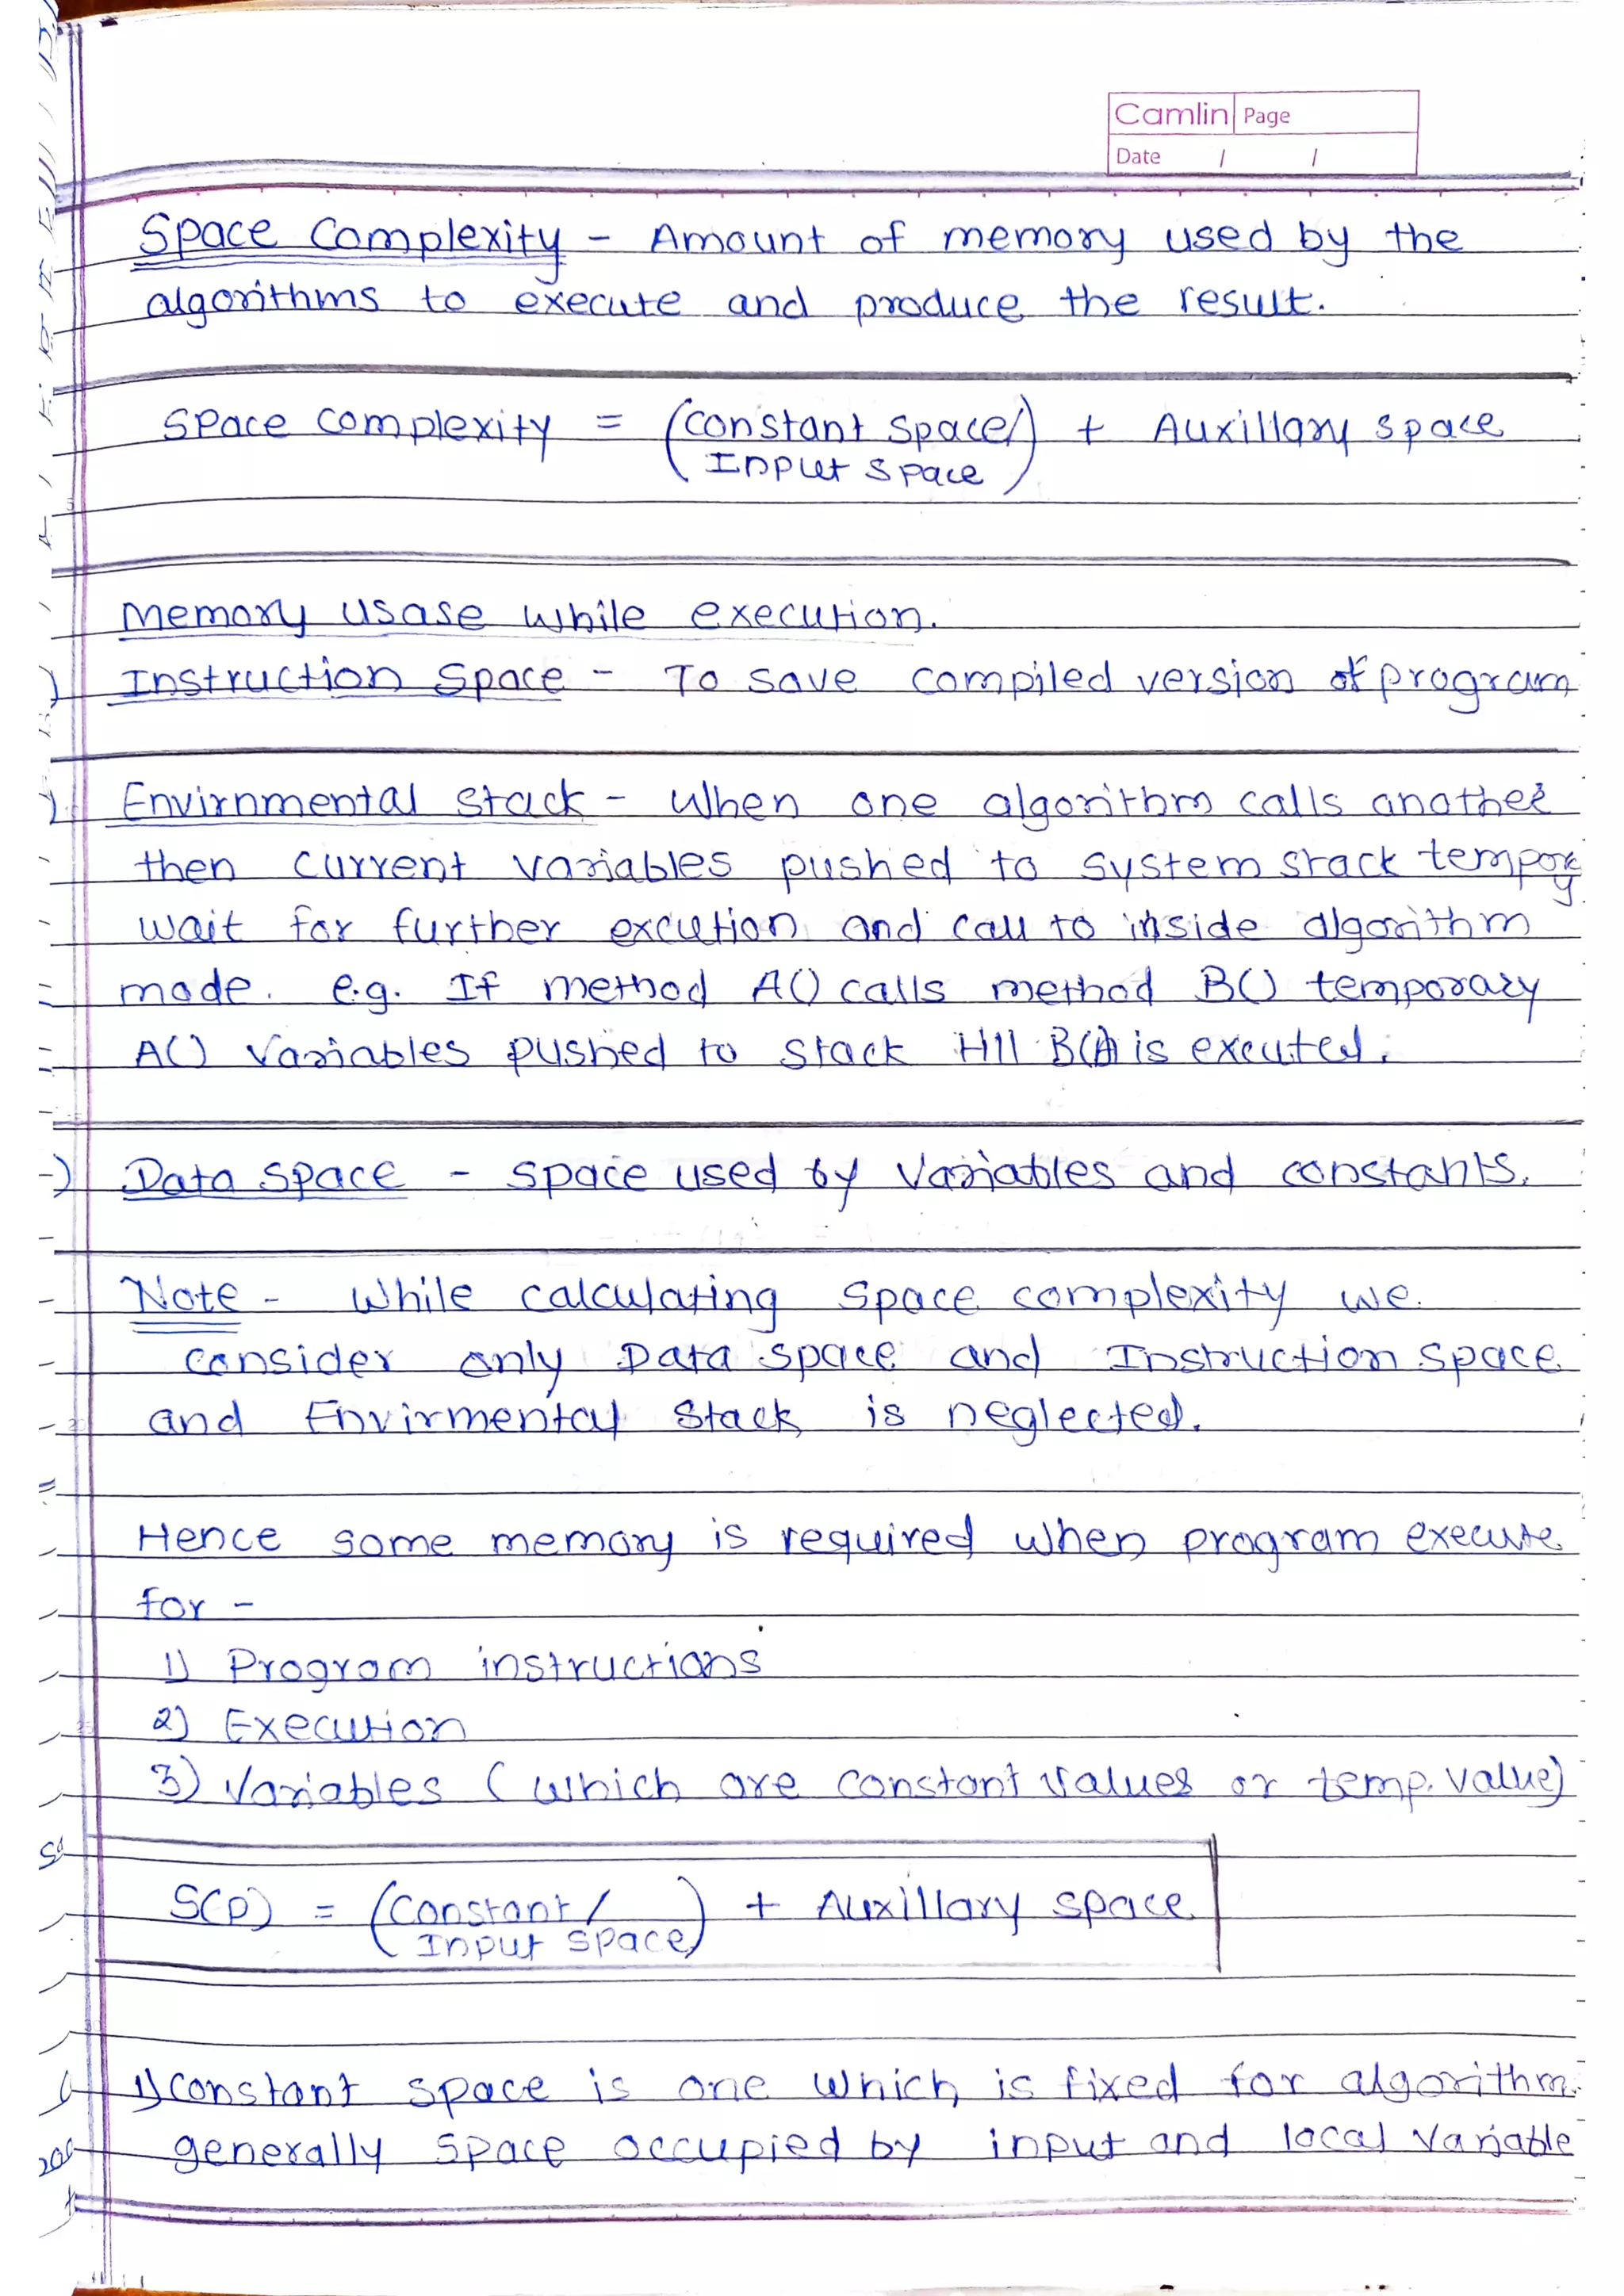 Camlin Page
Date / /
Space Complexity - Amount of memory used by the
algorithms to execute and produce the result.
Space complexity = (constant space/) + Auxillary space
Input space
Memory Usase while execution.
Instruction Space - To save compiled version of program
Envirnmental stack - When one algorithm calls another
then current variables pushed to system stack tempory
wait for further excution and call to inside algorithm
made. e.g. If method A() calls method B() temporary
A() variables pushed to stack till B() is executed.
Data space - space used by variables and constants.
Note - While calculating space complexity we
consider only Data space and Instruction space
and Envirmental stack is neglected.
Hence some memory is required when program execute
for -
1) Program instructions
2) Execution
3) Variables (which are constant values or temp. value)
S(P) = (constant / ) + Auxillary space
Input space
1) constant space is one which is fixed for algorithm.
generally space occupied by input and local variable